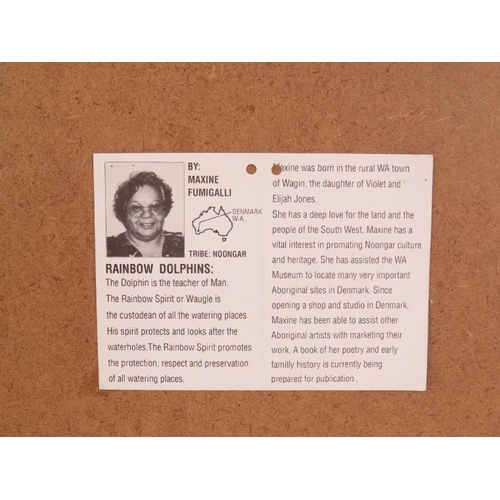 BY:
MAXINE
FUMIGALLI
DENMARK
W.A.
TRIBE: NOONGAR
RAINBOW DOLPHINS:
The Dolphin is the teacher of Man.
The Rainbow Spirit or Waugle is
the custodean of all the watering places
His spirit protects and looks after the
waterholes.The Rainbow Spirit promotes
the protection, respect and preservation
of all watering places.
Maxine was born in the rural WA town
of Wagin, the daughter of Violet and
Elijah Jones.
She has a deep love for the land and the
people of the South West. Maxine has a
vital interest in promating Noongar culture
and heritage. She has assisted the WA
Museum to locate many very important
Aboriginal sites in Denmark. Since
opening a shop and studio in Denmark,
Maxine has been able to assist other
Aboriginal artists with marketing their
work. A book of her poetry and early
familly history is currently being
prepared for publication .